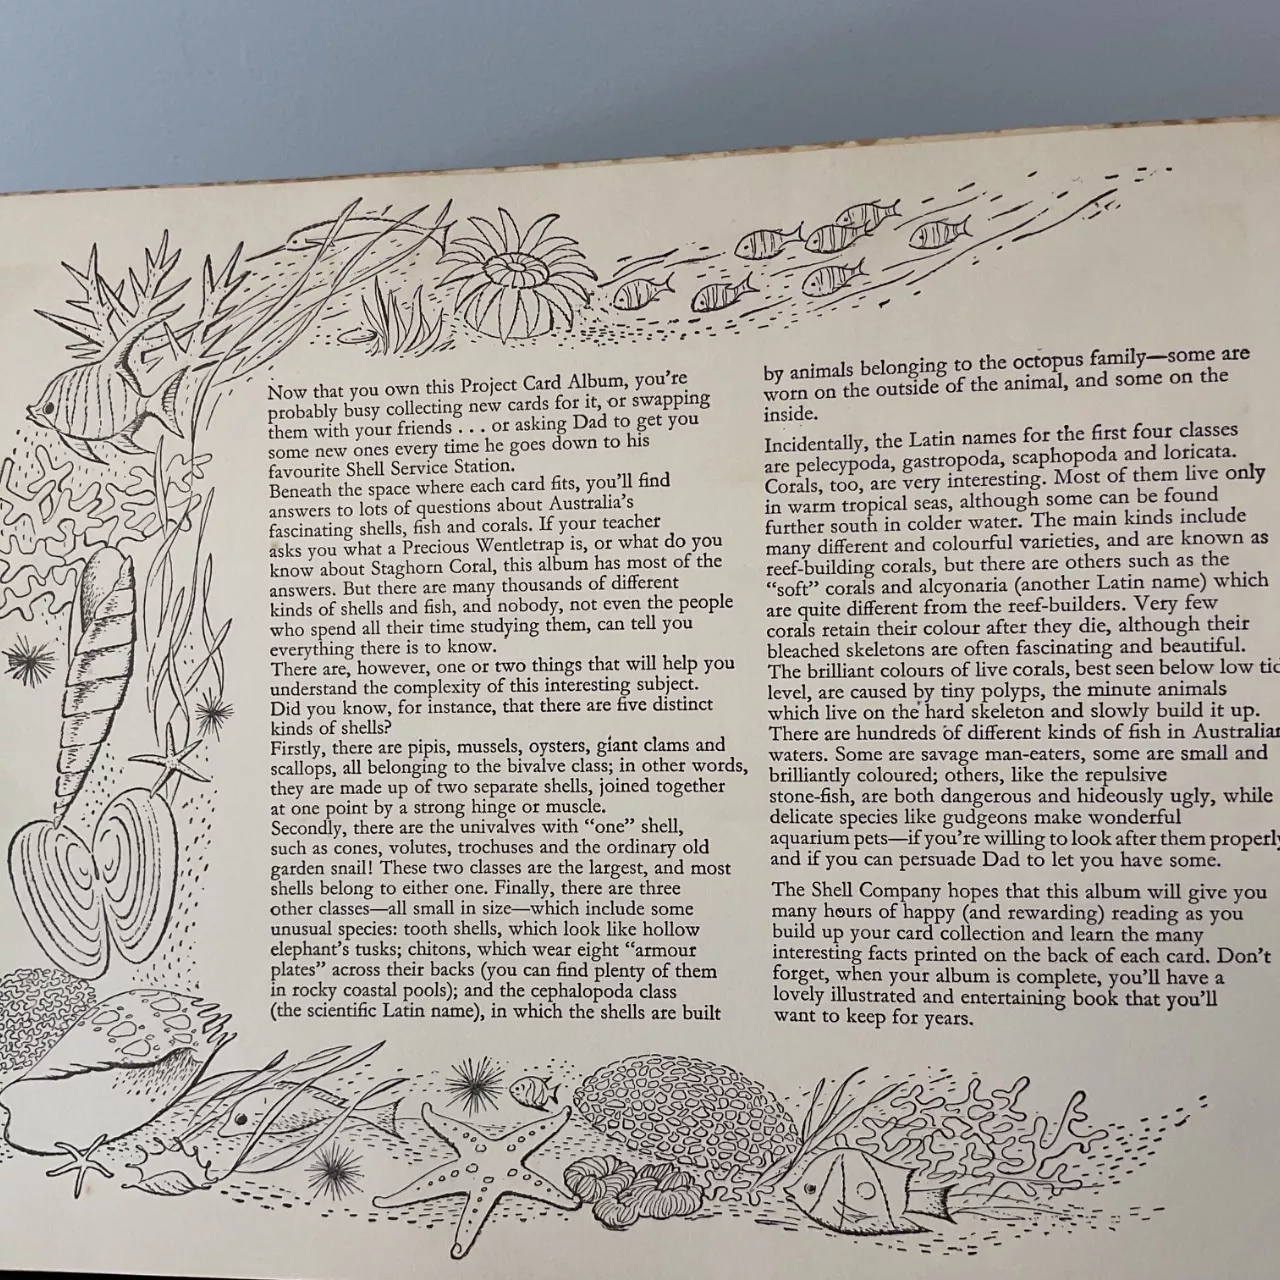 Now that you own this Project Card Album, you're
probably busy collecting new cards for it, or swapping
them with your friends . . . or asking Dad to get you
some new ones every time he goes down to his
favourite Shell Service Station.
Beneath the space where each card fits, you'll find
answers to lots of questions about Australia's
fascinating shells, fish and corals. If your teacher
asks you what a Precious Wentletrap is, or what do you
know about Staghorn Coral, this album has most of the
answers. But there are many thousands of different
kinds of shells and fish, and nobody, not even the people
who spend all their time studying them, can tell you
everything there is to know.
There are, however, one or two things that will help you
understand the complexity of this interesting subject.
Did you know, for instance, that there are five distinct
kinds of shells?
Firstly, there are pipis, mussels, oysters, giant clams and
scallops, all belonging to the bivalve class; in other words,
they are made up of two separate shells, joined together
at one point by a strong hinge or muscle.
Secondly, there are the univalves with “one” shell,
such as cones, volutes, trochuses and the ordinary old
garden snail! These two classes are the largest, and most
shells belong to either one. Finally, there are three
other classes—all small in size—which include some
unusual species: tooth shells, which look like hollow
elephant's tusks; chitons, which wear eight “armour
plates” across their backs (you can find plenty of them
in rocky coastal pools); and the cephalopoda class
(the scientific Latin name), in which the shells are built
by animals belonging to the octopus family—some are
worn on the outside of the animal, and some on the
inside.
Incidentally, the Latin names for the first four classes
are pelecypoda, gastropoda, scaphopoda and loricata.
Corals, too, are very interesting. Most of them live only
in warm tropical seas, although some can be found
further south in colder water. The main kinds include
many different and colourful varieties, and are known as
reef-building corals, but there are others such as the
“soft” corals and alcyonaria (another Latin name) which
are quite different from the reef-builders. Very few
corals retain their colour after they die, although their
bleached skeletons are often fascinating and beautiful.
The brilliant colours of live corals, best seen below low tid
level, are caused by tiny polyps, the minute animals
which live on the hard skeleton and slowly build it up.
There are hundreds of different kinds of fish in Australian
waters. Some are savage man-eaters, some are small and
brilliantly coloured; others, like the repulsive
stone-fish, are both dangerous and hideously ugly, while
delicate species like gudgeons make wonderful
aquarium pets—if you're willing to look after them properly
and if you can persuade Dad to let you have some.
The Shell Company hopes that this album will give you
many hours of happy (and rewarding) reading as you
build up your card collection and learn the many
interesting facts printed on the back of each card. Don't
forget, when your album is complete, you'll have a
lovely illustrated and entertaining book that you'll
want to keep for years.